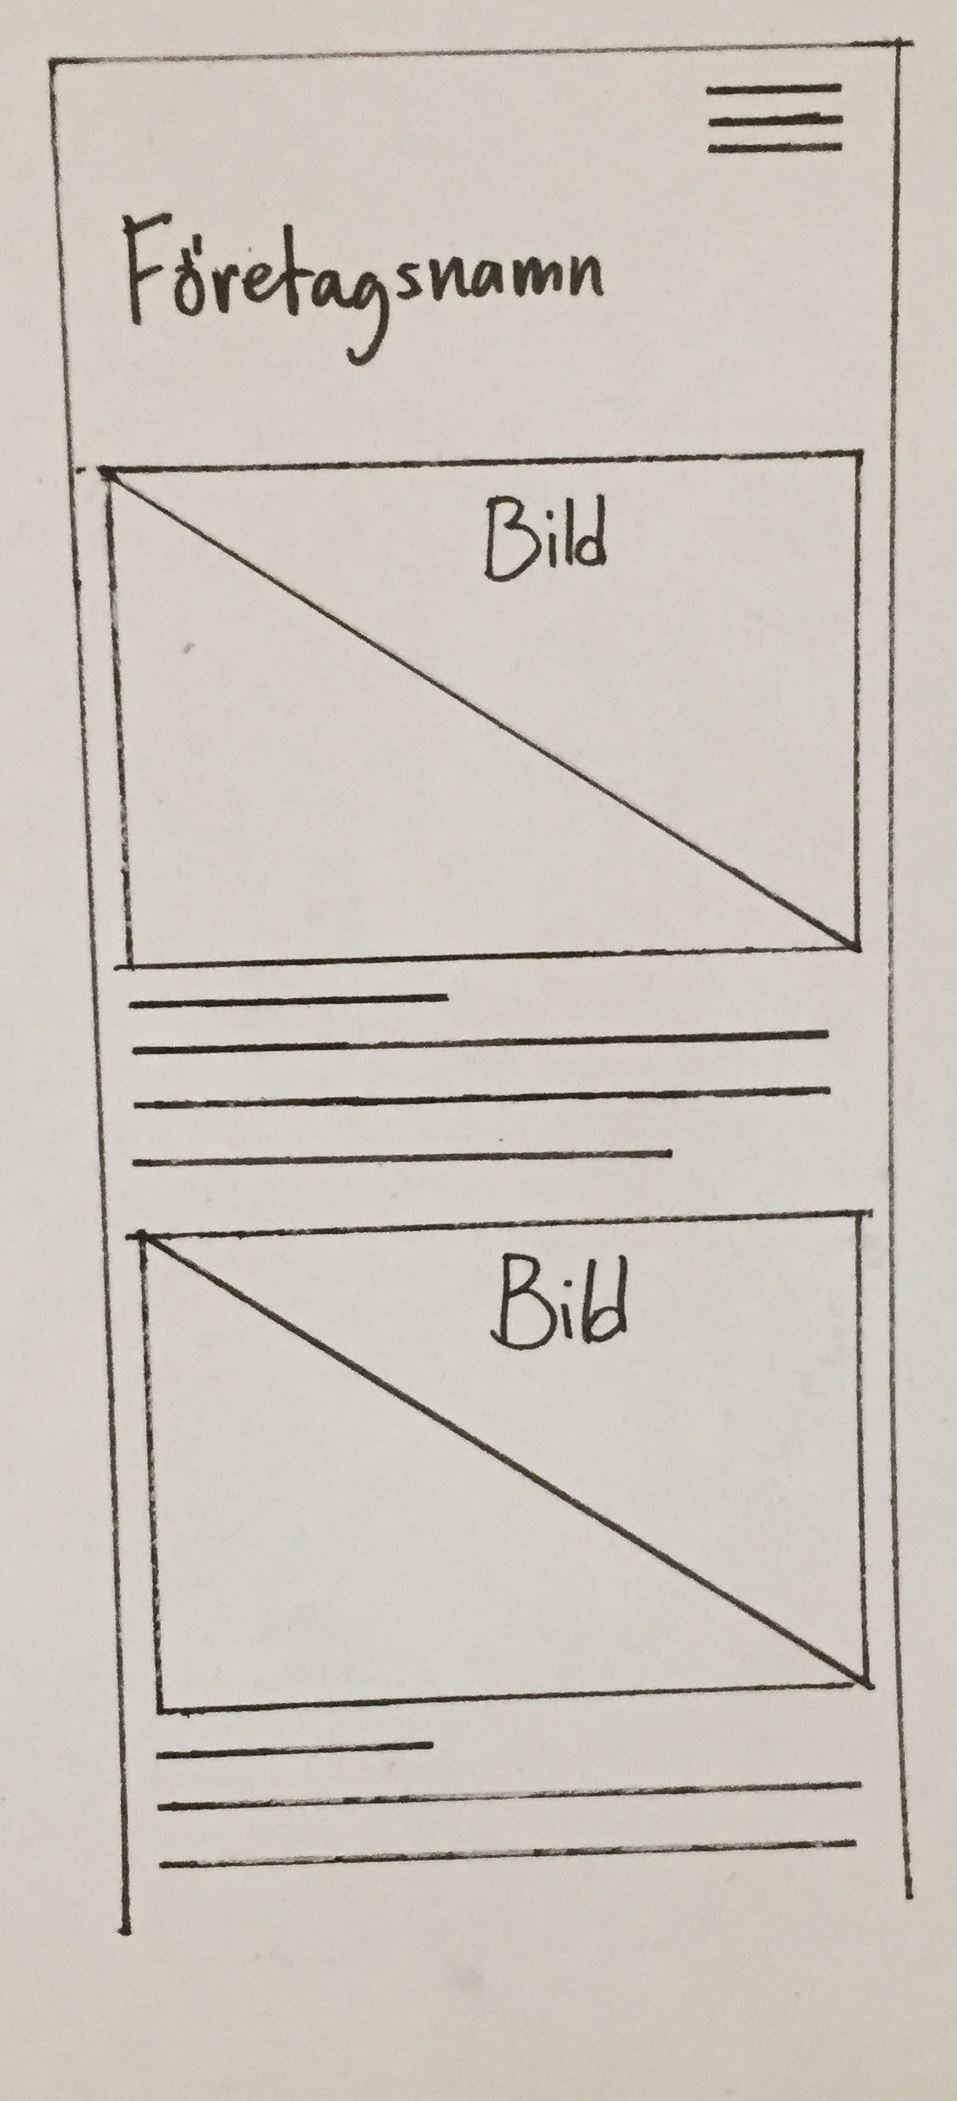 Företagsnamn
Bild
Bild